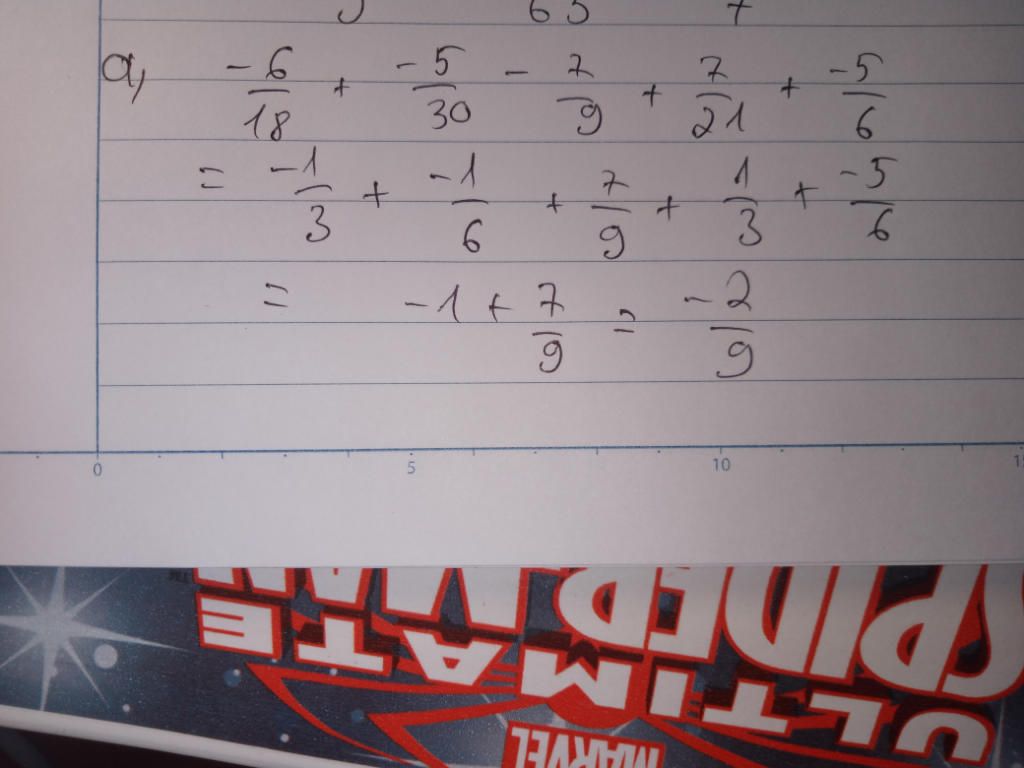 65 7
a, -6/18 + -5/30 - 7/9 + 7/21 + -5/6
= -1/3 + -1/6 + 7/9 + 1/3 + -5/6
= -1 + 7/9 = -2/9
0 5 10
ULTIMATE
SPIDER-MAN
MARVEL